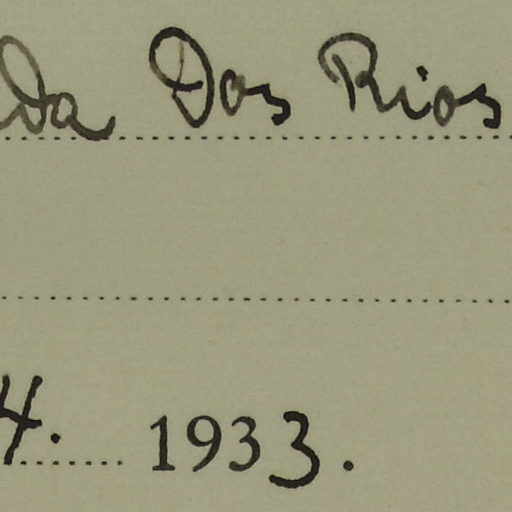 Da Dos Rios
4. 1933.